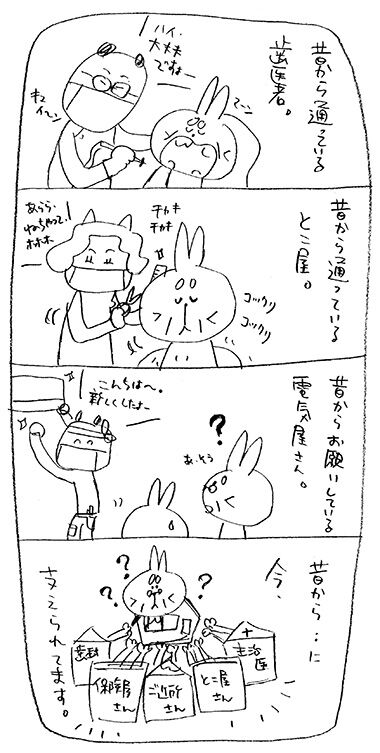 昔から通っている
歯医者。
ハイ、
大丈夫
ですねー
キュ
イーン
アーン
昔から通っている
とこ屋。
チョキ
チョキ
あらら、
ねちゃって、
ホホホ
コックリ
コックリ
昔からお願いしている
電気屋さん。
こんちは〜。
新しくしたよー
?
あ、そう
昔から‥に
今、
?
?
?
歯科
保険屋
さん
ご近所
さん
とこ屋
さん
主治
医
支えられてます。